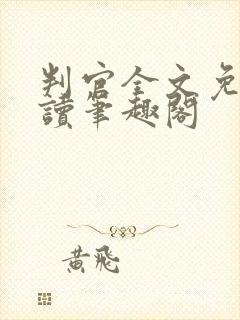 判官全文免
讀筆趣閣
黃飛